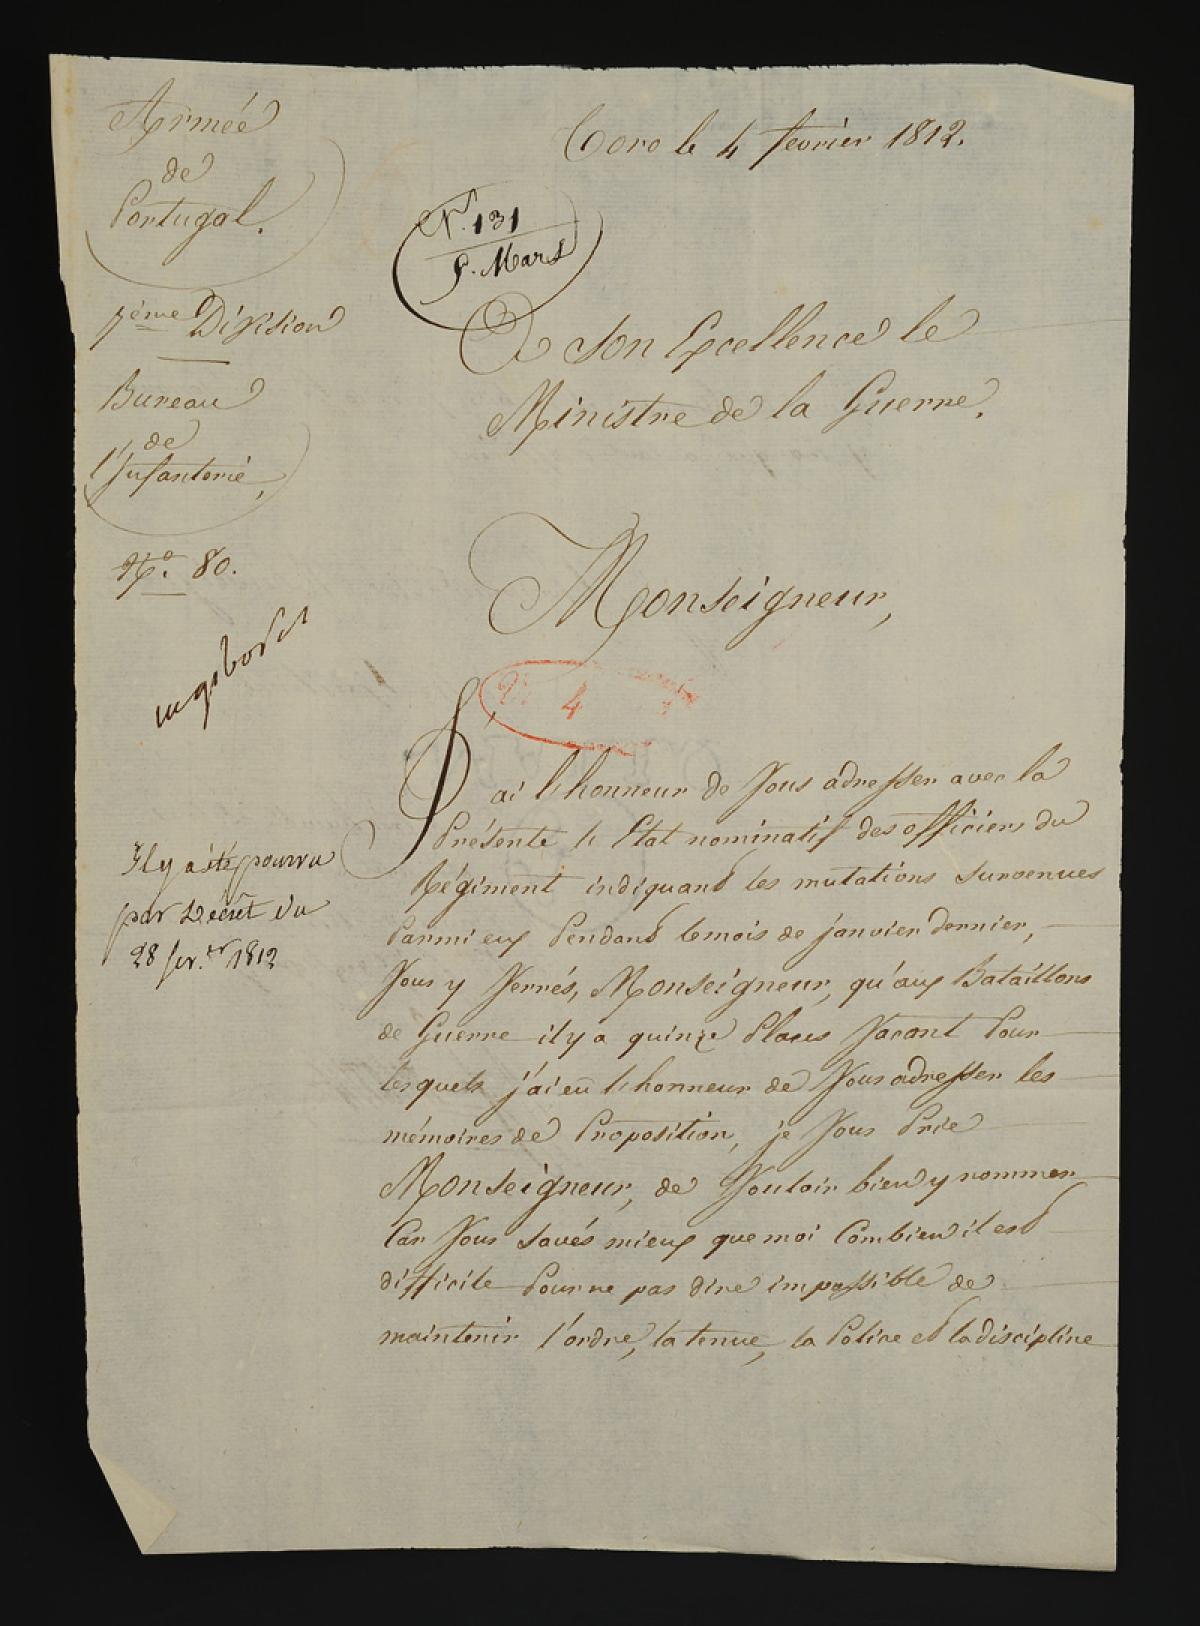 Armée
de
Portugal.
7ème Division
Bureau
de
l'Infanterie,
No. 80.
Toro le 4 fevrier 1812.
N. 131
Mars
A Son Excellence le
Ministre de la Guerre.
Monseigneur,
4
J'ai l'honneur de Vous adresser avec la
Présente l'Etat nominatif des officiers du
Régiment indiquand les mutations survenues
Parmi eux Pendand le mois de janvier dernier,
Vous y Verrés, Monseigneur, qu'aux Bataillons
de Guerre il y a quinze Places Vacant Pour
lesquels j'ai eu l'honneur de Vous adresser les
mémoires de Proposition, je Vous Prie
Monseigneur, de Vouloir bien y nommer
Car Vous Savés mieux que moi Combien il est
difficile Pour ne pas dire impossible de
maintenir l'ordre, la tenue, la Police et la discipline
Il y a été pourvu
par Décret du
28 fev.er 1812